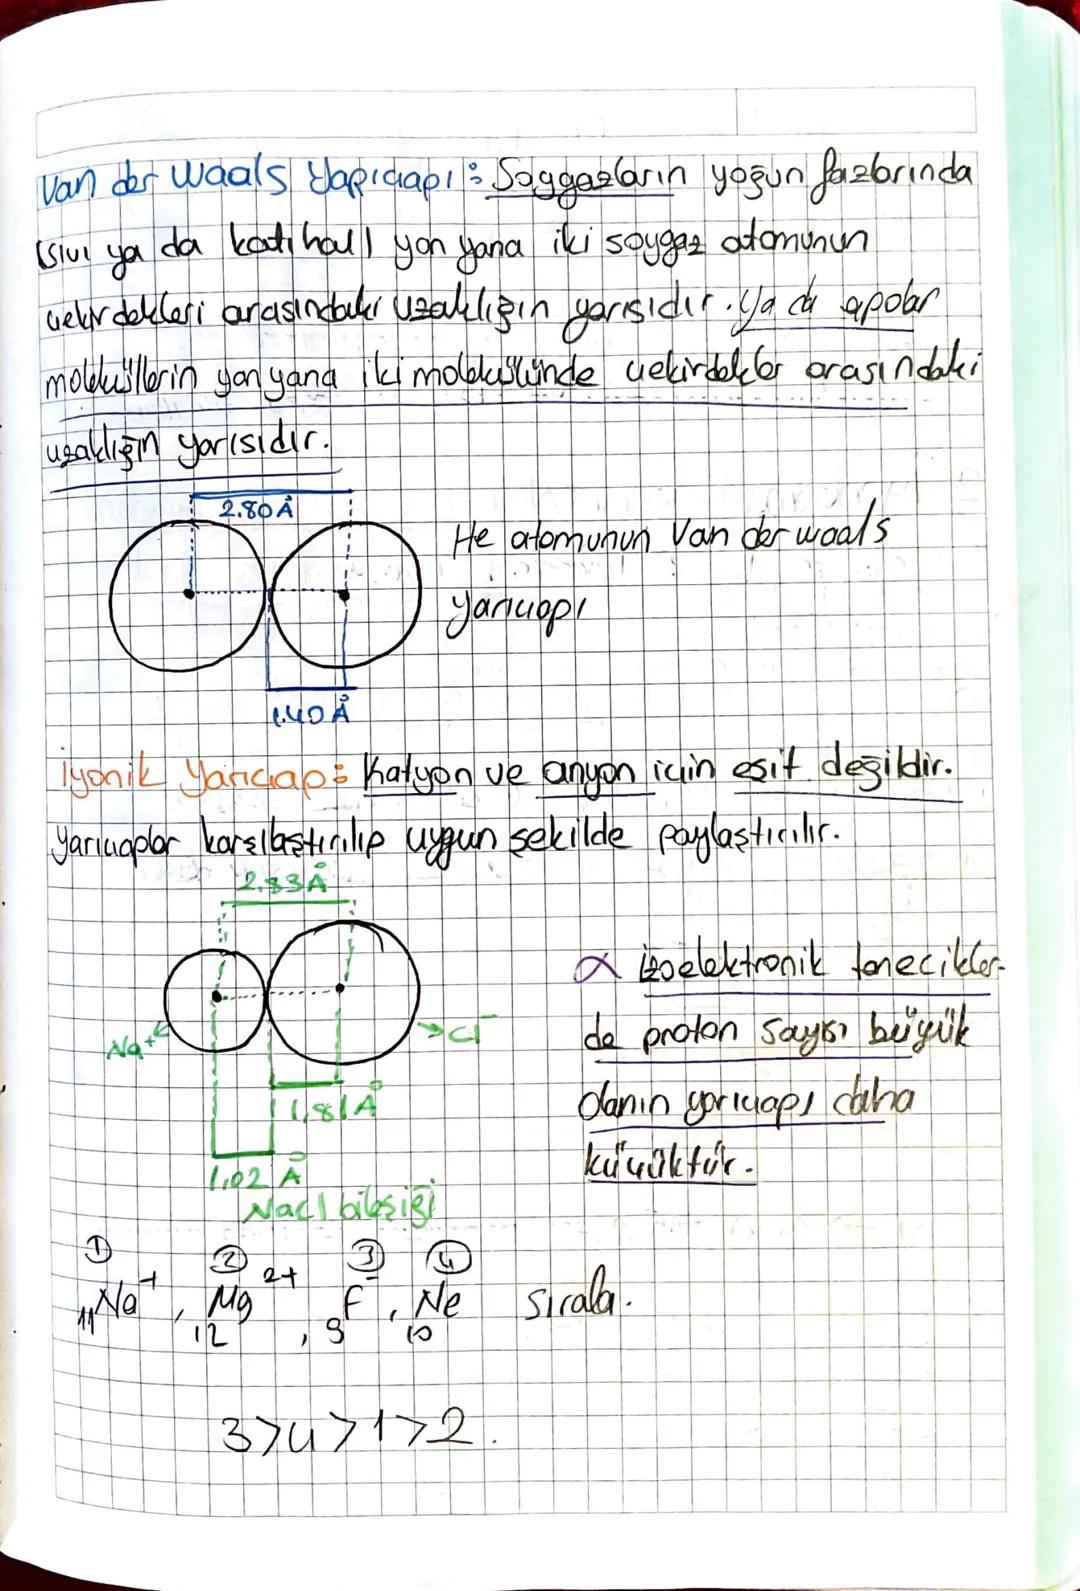 Van der Waals Yarıçapı: Soygazların yoğun fazlarında
(sıvı ya da katı hal) yan yana iki soygaz atomunun
çekirdekleri arasındaki uzaklığın yarısıdır. Ya da apolar
moleküllerin yan yana iki molekülünde çekirdekler arasındaki
uzaklığın yarısıdır.
2.80 Å
He atomunun Van der waals
yarıçapı
1.40 Å
İyonik Yarıçap: Katyon ve anyon için eşit değildir.
yarıçaplar karşılaştırılıp uygun şekilde paylaştırılır.
2.83 Å
α İzoelektronik tanecikler-
de proton sayısı büyük
olanın yarıçapı daha
küçüktür.
Na+
Cl-
1,81 Å
1,02 Å
NaCl bileşiği
① ② ③ ④
11Na+, 12Mg2+, 9F-, 10Ne Sırala.
3>4>1>2.